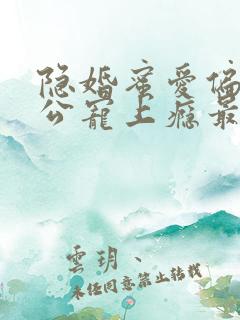 隐婚蜜爱偏
公宠上瘾最
雲玥、
未经同意禁止转载